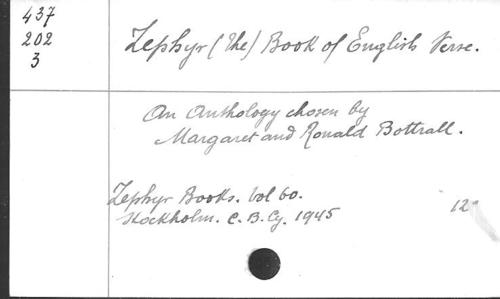 437
202
3
Zephyr (the) Book of English Verse.
An Anthology chosen by
Margaret and Ronald Bottrall.
Zephyr Books. Vol 60.
Stockholm. C. B. Cy. 1945
12°